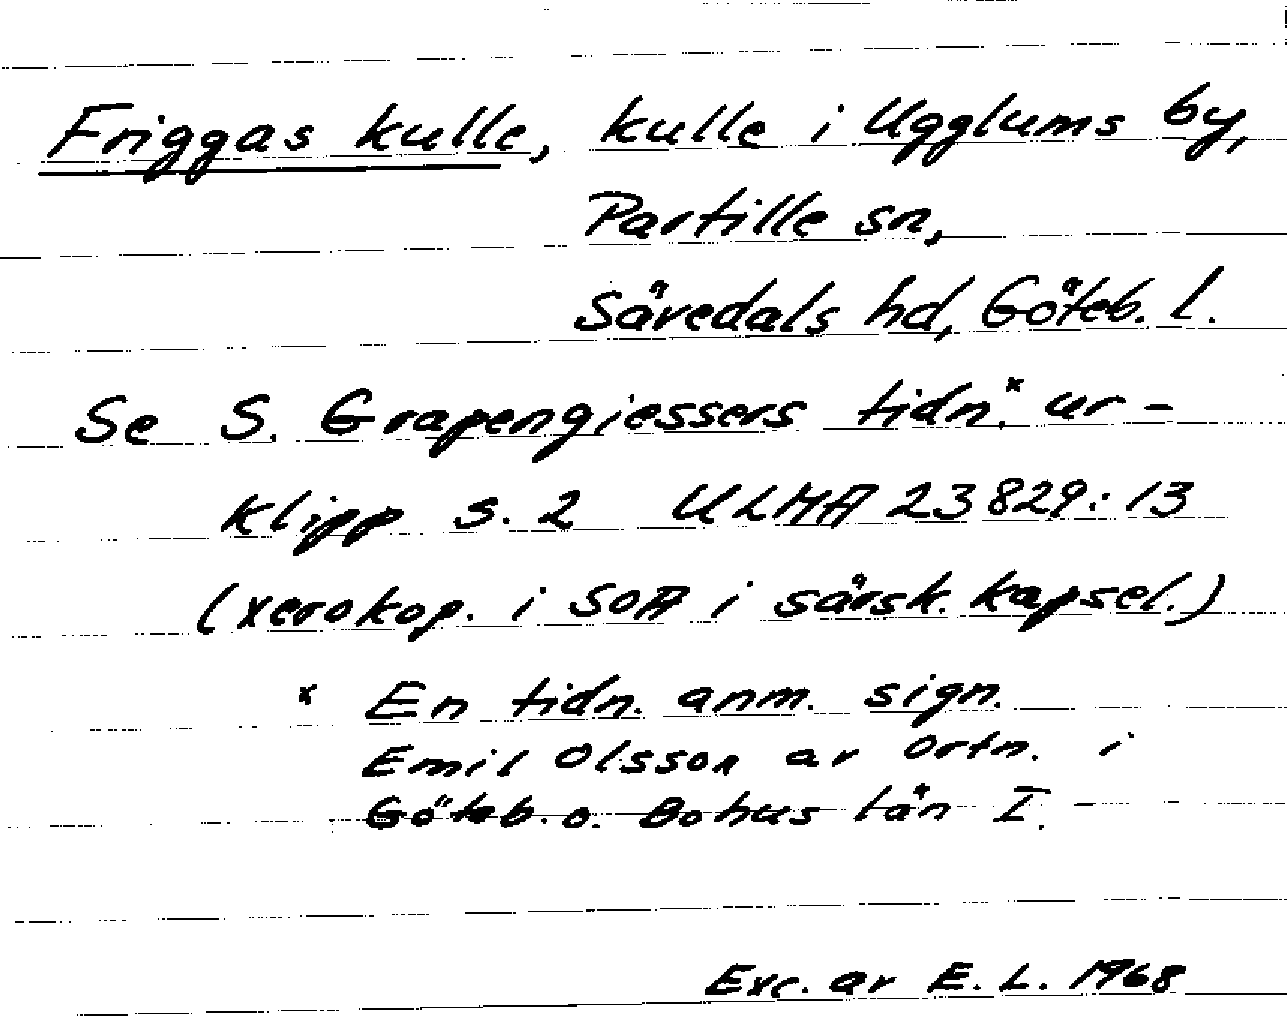 Friggas kulle, kulle i Ugglums by,
Partille sn,
Sävedals hd, Göteb. l.
Se S. Grapengiessers tidn.ˣ ur-
klipp s. 2 ULMA 23829:13
(xerokop. i SOA i särsk. kapsel.)
x En tidn. anm. sign.
Emil Olsson av Ortn. i
Göteb. o. Bohus län I.
Exc. av E. L. 1968